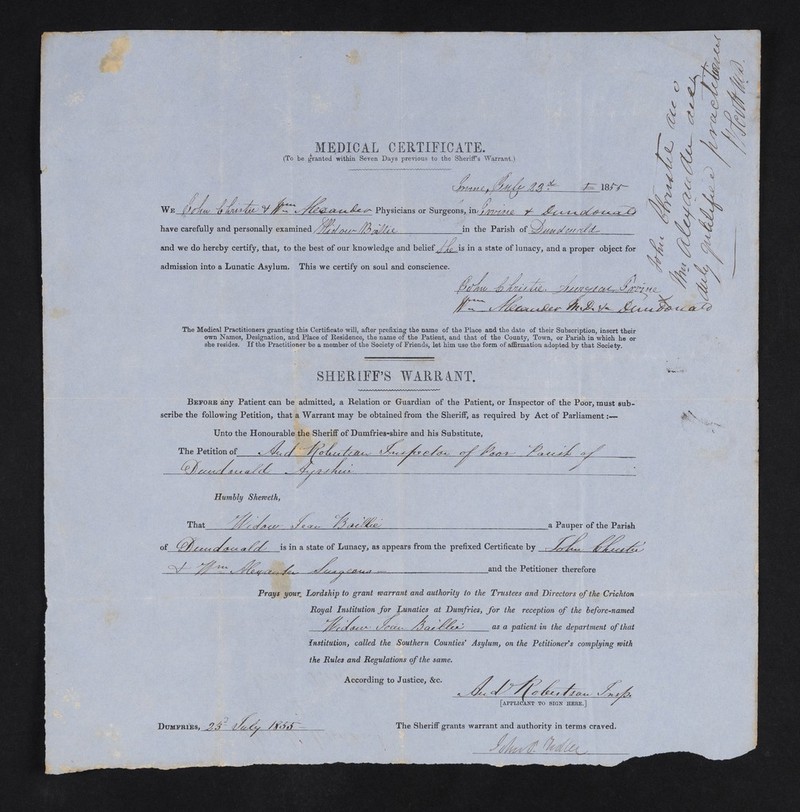 MEDICAL CERTIFICATE.
(To be granted within Seven Days previous to the Sheriff's Warrant.)
Irvine, July 23d 1855
WE John Christie & Wm Alexander Physicians or Surgeons, in Irvine & Dundonald
have carefully and personally examined Widow Baillie in the Parish of Dundonald
and we do hereby certify, that, to the best of our knowledge and belief She is in a state of lunacy, and a proper object for
admission into a Lunatic Asylum. This we certify on soul and conscience.
John Christie Surgeon Irvine
Wm Alexander M.D. Dundonald
John Christie and
Wm Alexander are
duly qualified practitioners
Scott M.D.
The Medical Practitioners granting this Certificate will, after prefixing the name of the Place and the date of their Subscription, insert their
own Names, Designation, and Place of Residence, the name of the Patient, and that of the County, Town, or Parish in which he or
she resides. If the Practitioner be a member of the Society of Friends, let him use the form of affirmation adopted by that Society.
SHERIFF'S WARRANT.
BEFORE any Patient can be admitted, a Relation or Guardian of the Patient, or Inspector of the Poor, must sub-
scribe the following Petition, that a Warrant may be obtained from the Sheriff, as required by Act of Parliament:—
Unto the Honourable the Sheriff of Dumfries-shire and his Substitute,
The Petition of And Robertson Inspector of Poor Parish of
Dundonald Ayrshire
Humbly Sheweth,
That Widow Jean Baillie a Pauper of the Parish
of Dundonald is in a state of Lunacy, as appears from the prefixed Certificate by John Christie
& Wm Alexander Surgeons and the Petitioner therefore
Prays your Lordship to grant warrant and authority to the Trustees and Directors of the Crichton
Royal Institution for Lunatics at Dumfries, for the reception of the before-named
Widow Jean Baillie as a patient in the department of that
Institution, called the Southern Counties' Asylum, on the Petitioner's complying with
the Rules and Regulations of the same.
According to Justice, &c.
And Robertson Insp.
[APPLICANT TO SIGN HERE.]
DUMFRIES, 25 July 1855 The Sheriff grants warrant and authority in terms craved.